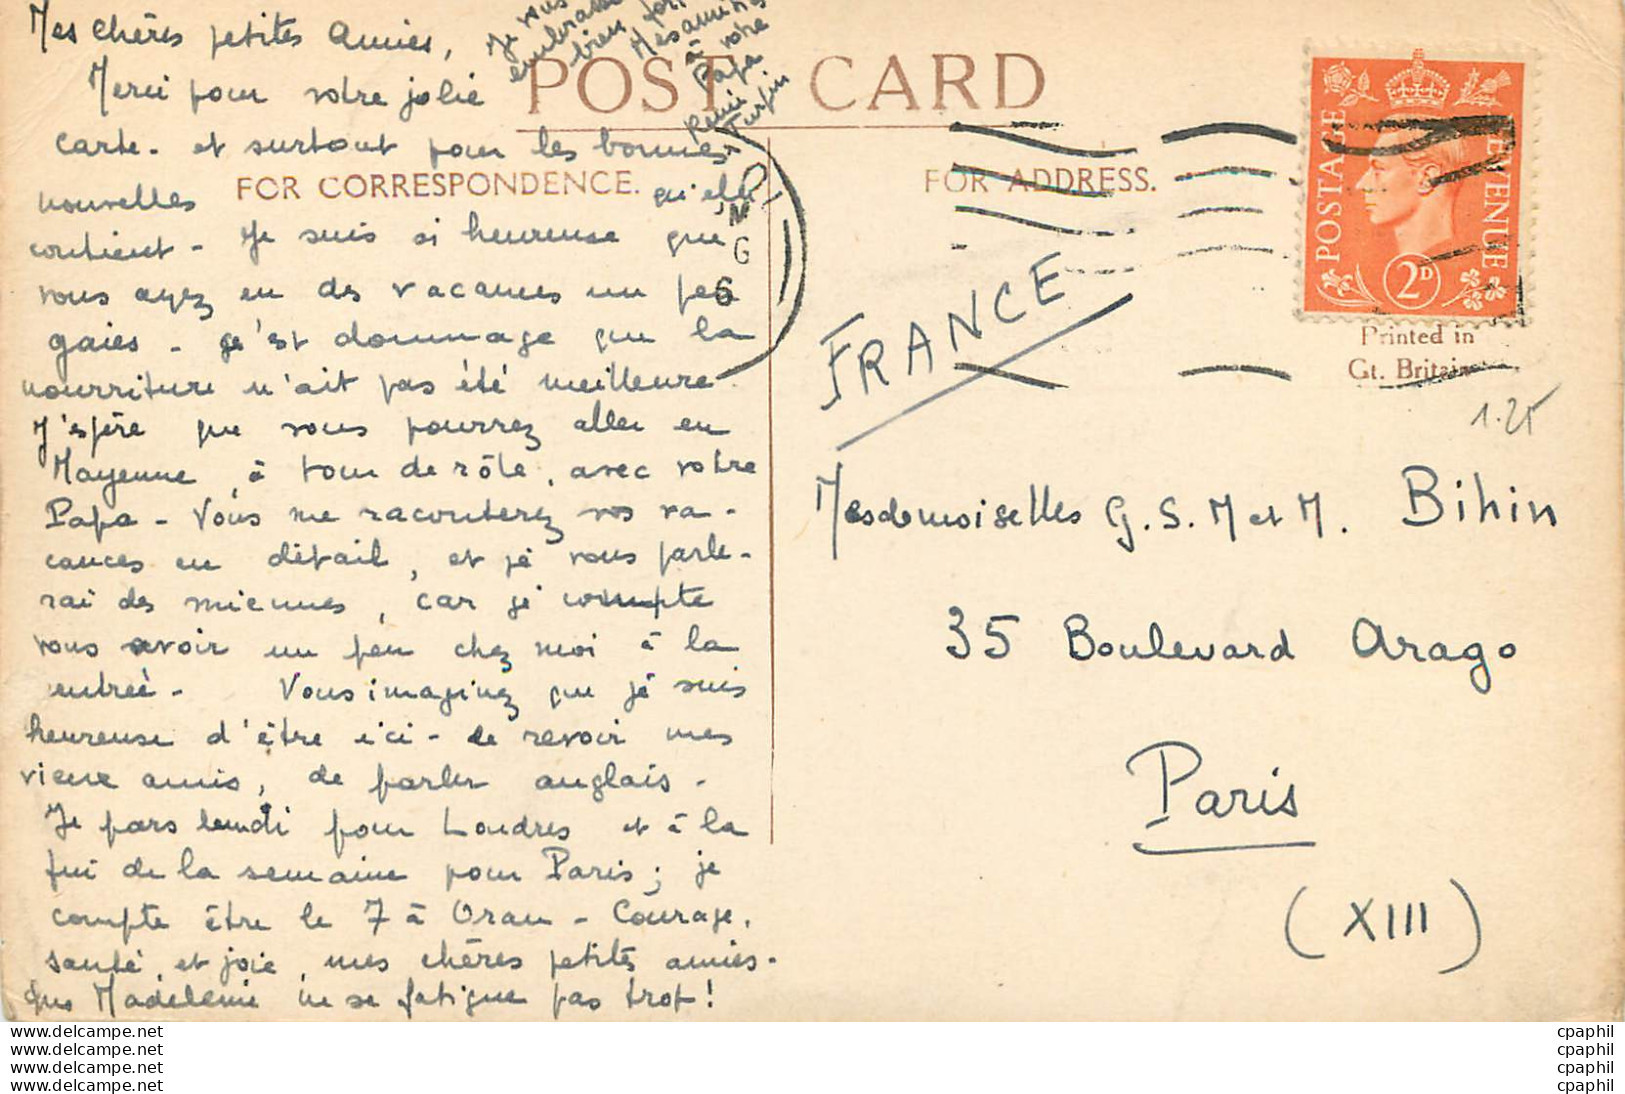 Mes chères petites amies,
Merci pour votre jolie
carte - et surtout pour les bonnes
nouvelles qu'elle
contient - Je suis si heureuse que
vous ayez eu des vacances un peu
gaies - c'est dommage que la
nourriture n'ait pas été meilleure -
J'espère que vous pourrez aller en
Mayenne, à tour de rôle, avec votre
Papa - Vous me raconterez vos va-
cances en détail, et je vous parle-
rai des miennes, car je compte
vous avoir un peu chez moi à la
rentrée - Vous imaginez que je suis
heureuse d'être ici - de revoir mes
vieux amis, de parler anglais -
Je pars lundi pour Londres et à la
fin de la semaine pour Paris ; je
compte être le 7 à Oran - Courage,
santé, et joie, mes chères petites amies -
Que Madeleine ne se fatigue pas trop !
Je vous
embrasse
bien fort
Mes amitiés
à votre
Papa
Turpin
POST CARD
FOR CORRESPONDENCE.
FOR ADDRESS.
POSTAGE REVENUE
2D
Printed in
Gt. Britain
1.25
FRANCE
Mesdemoiselles G. S. M et M. Bihin
35 Boulevard Arago
Paris
(XIII)
delcampe.net
delcampe.net
delcampe.net
delcampe.net
cpaphil
cpaphil
cpaphil
cpaphil